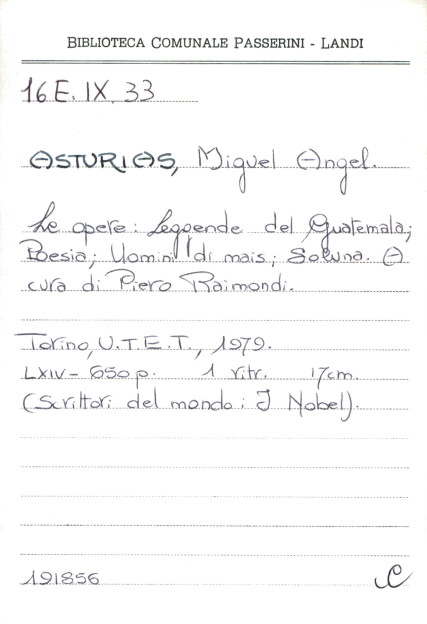 BIBLIOTECA COMUNALE PASSERINI - LANDI
16 E. IX. 33
ASTURIAS, Miguel Angel.
Le opere: Leggende del Guatemala;
Poesia; Uomini di mais; Soluna. A
cura di Piero Raimondi.
Torino, U.T.E.T., 1979.
LXIV - 650 p. 1 ritr. 17cm.
(Scrittori del mondo: I Nobel).
191856 C